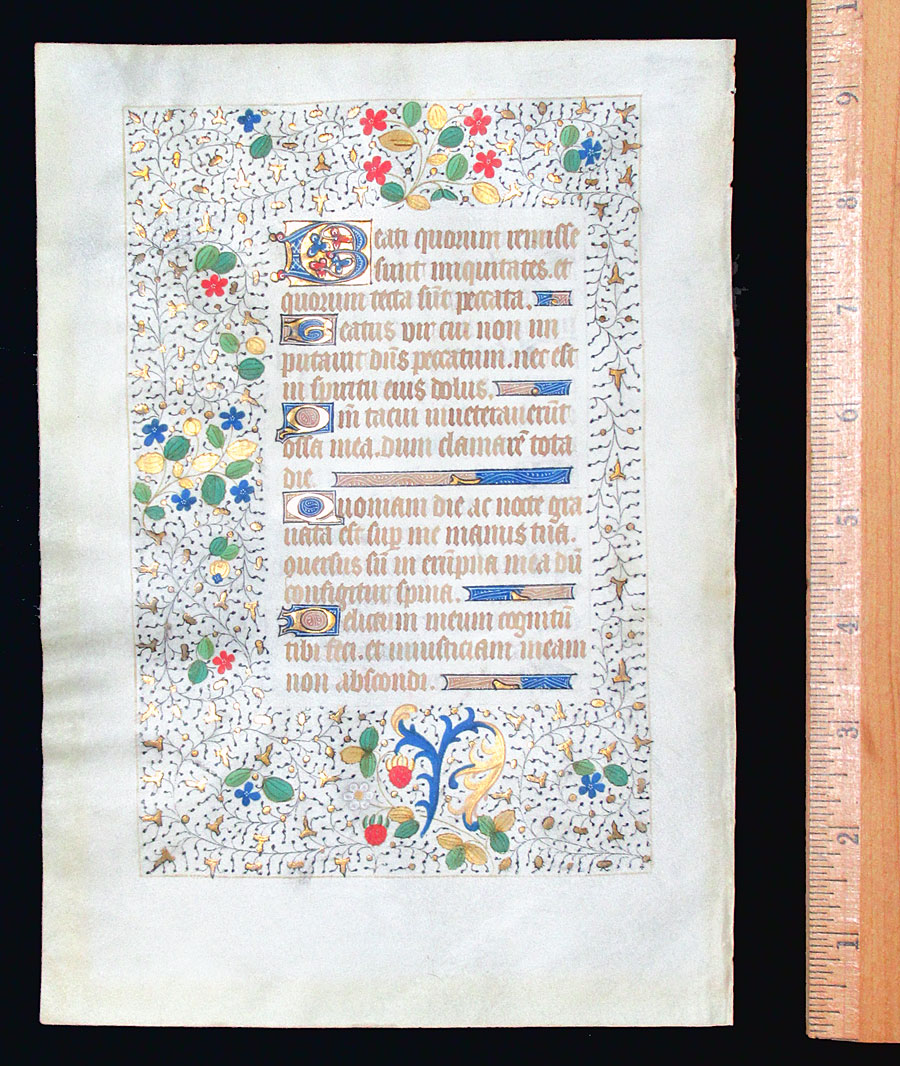 Beati quorum remisse
sunt iniquitates. et
quorum tecta sūt peccata.
Beatus vir cui non im
putauit dñs peccatum. nec est
in spiritu eius dolus.
Qm̄ tacui inueterauerūt
ossa mea. dum clamarē tota
die.
Quoniam die ac nocte gra
uata est sup me manus tua.
conuersus sū in erūpna mea dū
configitur spina.
Delictum meum cognitū
tibi feci. et iniusticiam meam
non abscondi.
1
9
8
7
6
5
4
3
2
1